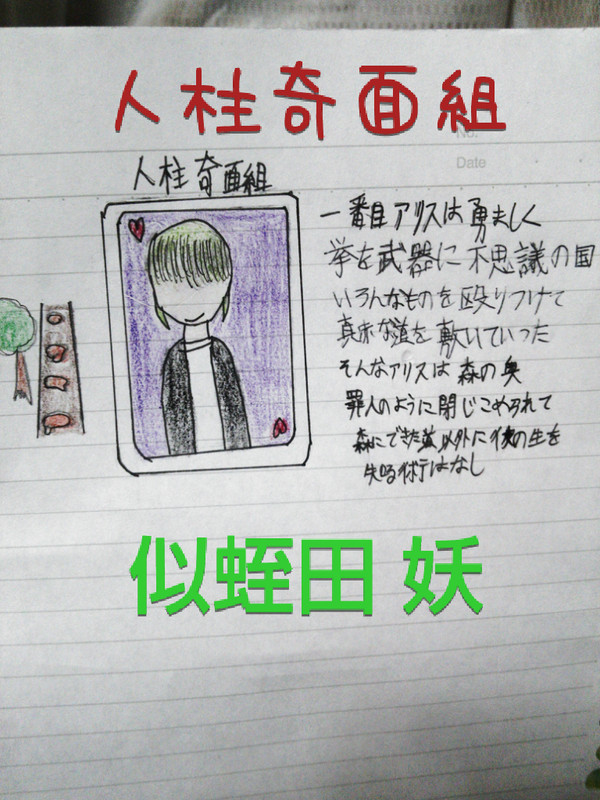 人柱奇面組
No.
Date
人柱奇面組
一番目アリスは勇ましく
拳を武器に不思議の国
いろんなものを殴りつけて
真赤な道を敷いていった
そんなアリスは森の奥
罪人のように閉じこめられて
森にできた道以外に彼の生を
失る術はなし
似蛭田 妖